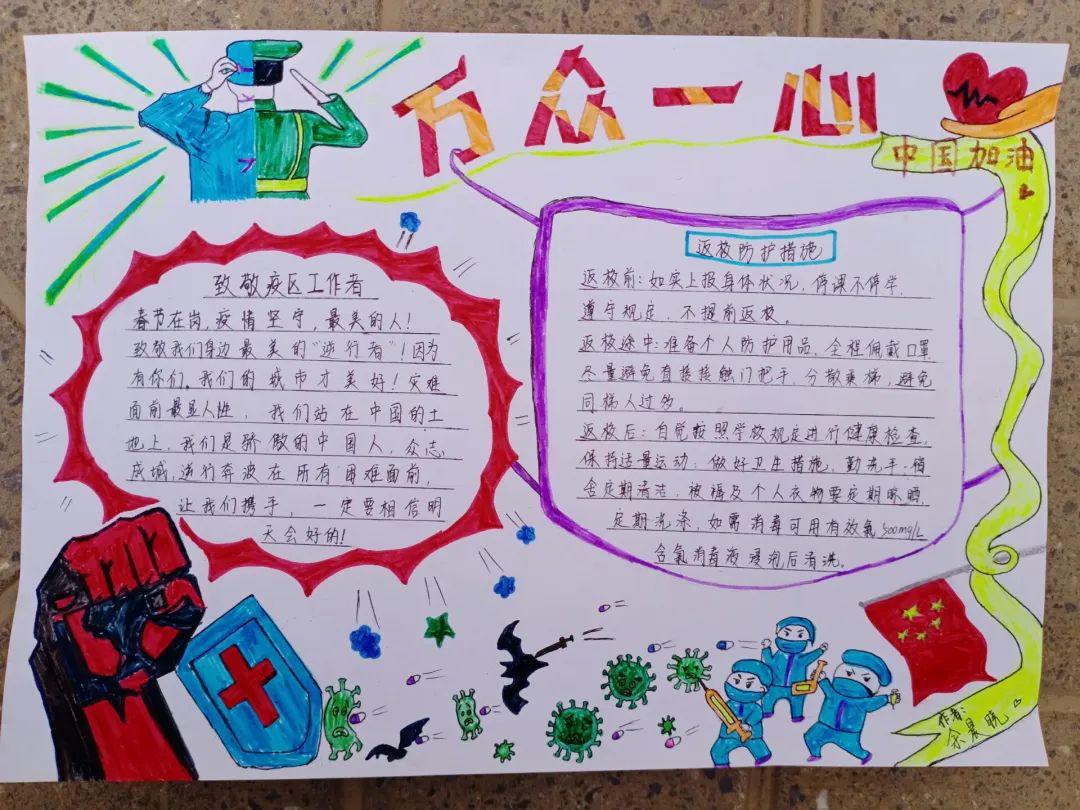 万众一心
中国加油
致敬疫区工作者
春节在岗,疫情坚守,最美的人!
致敬我们身边最美的“逆行者”!因为
有你们。我们的城市才美好!灾难
面前最显人性,我们站在中国的土
地上,我们是骄傲的中国人,众志
成城,逆行奔波在所有困难面前,
让我们携手,一定要相信明
天会好的!
返校防护措施
返校前:如实上报身体状况,停课不停学,
遵守规定,不提前返校。
返校途中:准备个人防护用品,全程佩戴口罩,
尽量避免直接接触门把手,分散乘梯,避免
同梯人过多。
返校后:自觉按照学校规定进行健康检查,
保持适量运动:做好卫生措施,勤洗手,宿
舍定期清洁,被褥及个人衣物要定期晾晒,
定期洗涤,如需消毒可用有效氯500mg/L
含氯消毒液浸泡后清洗。
作者:
余晨晓